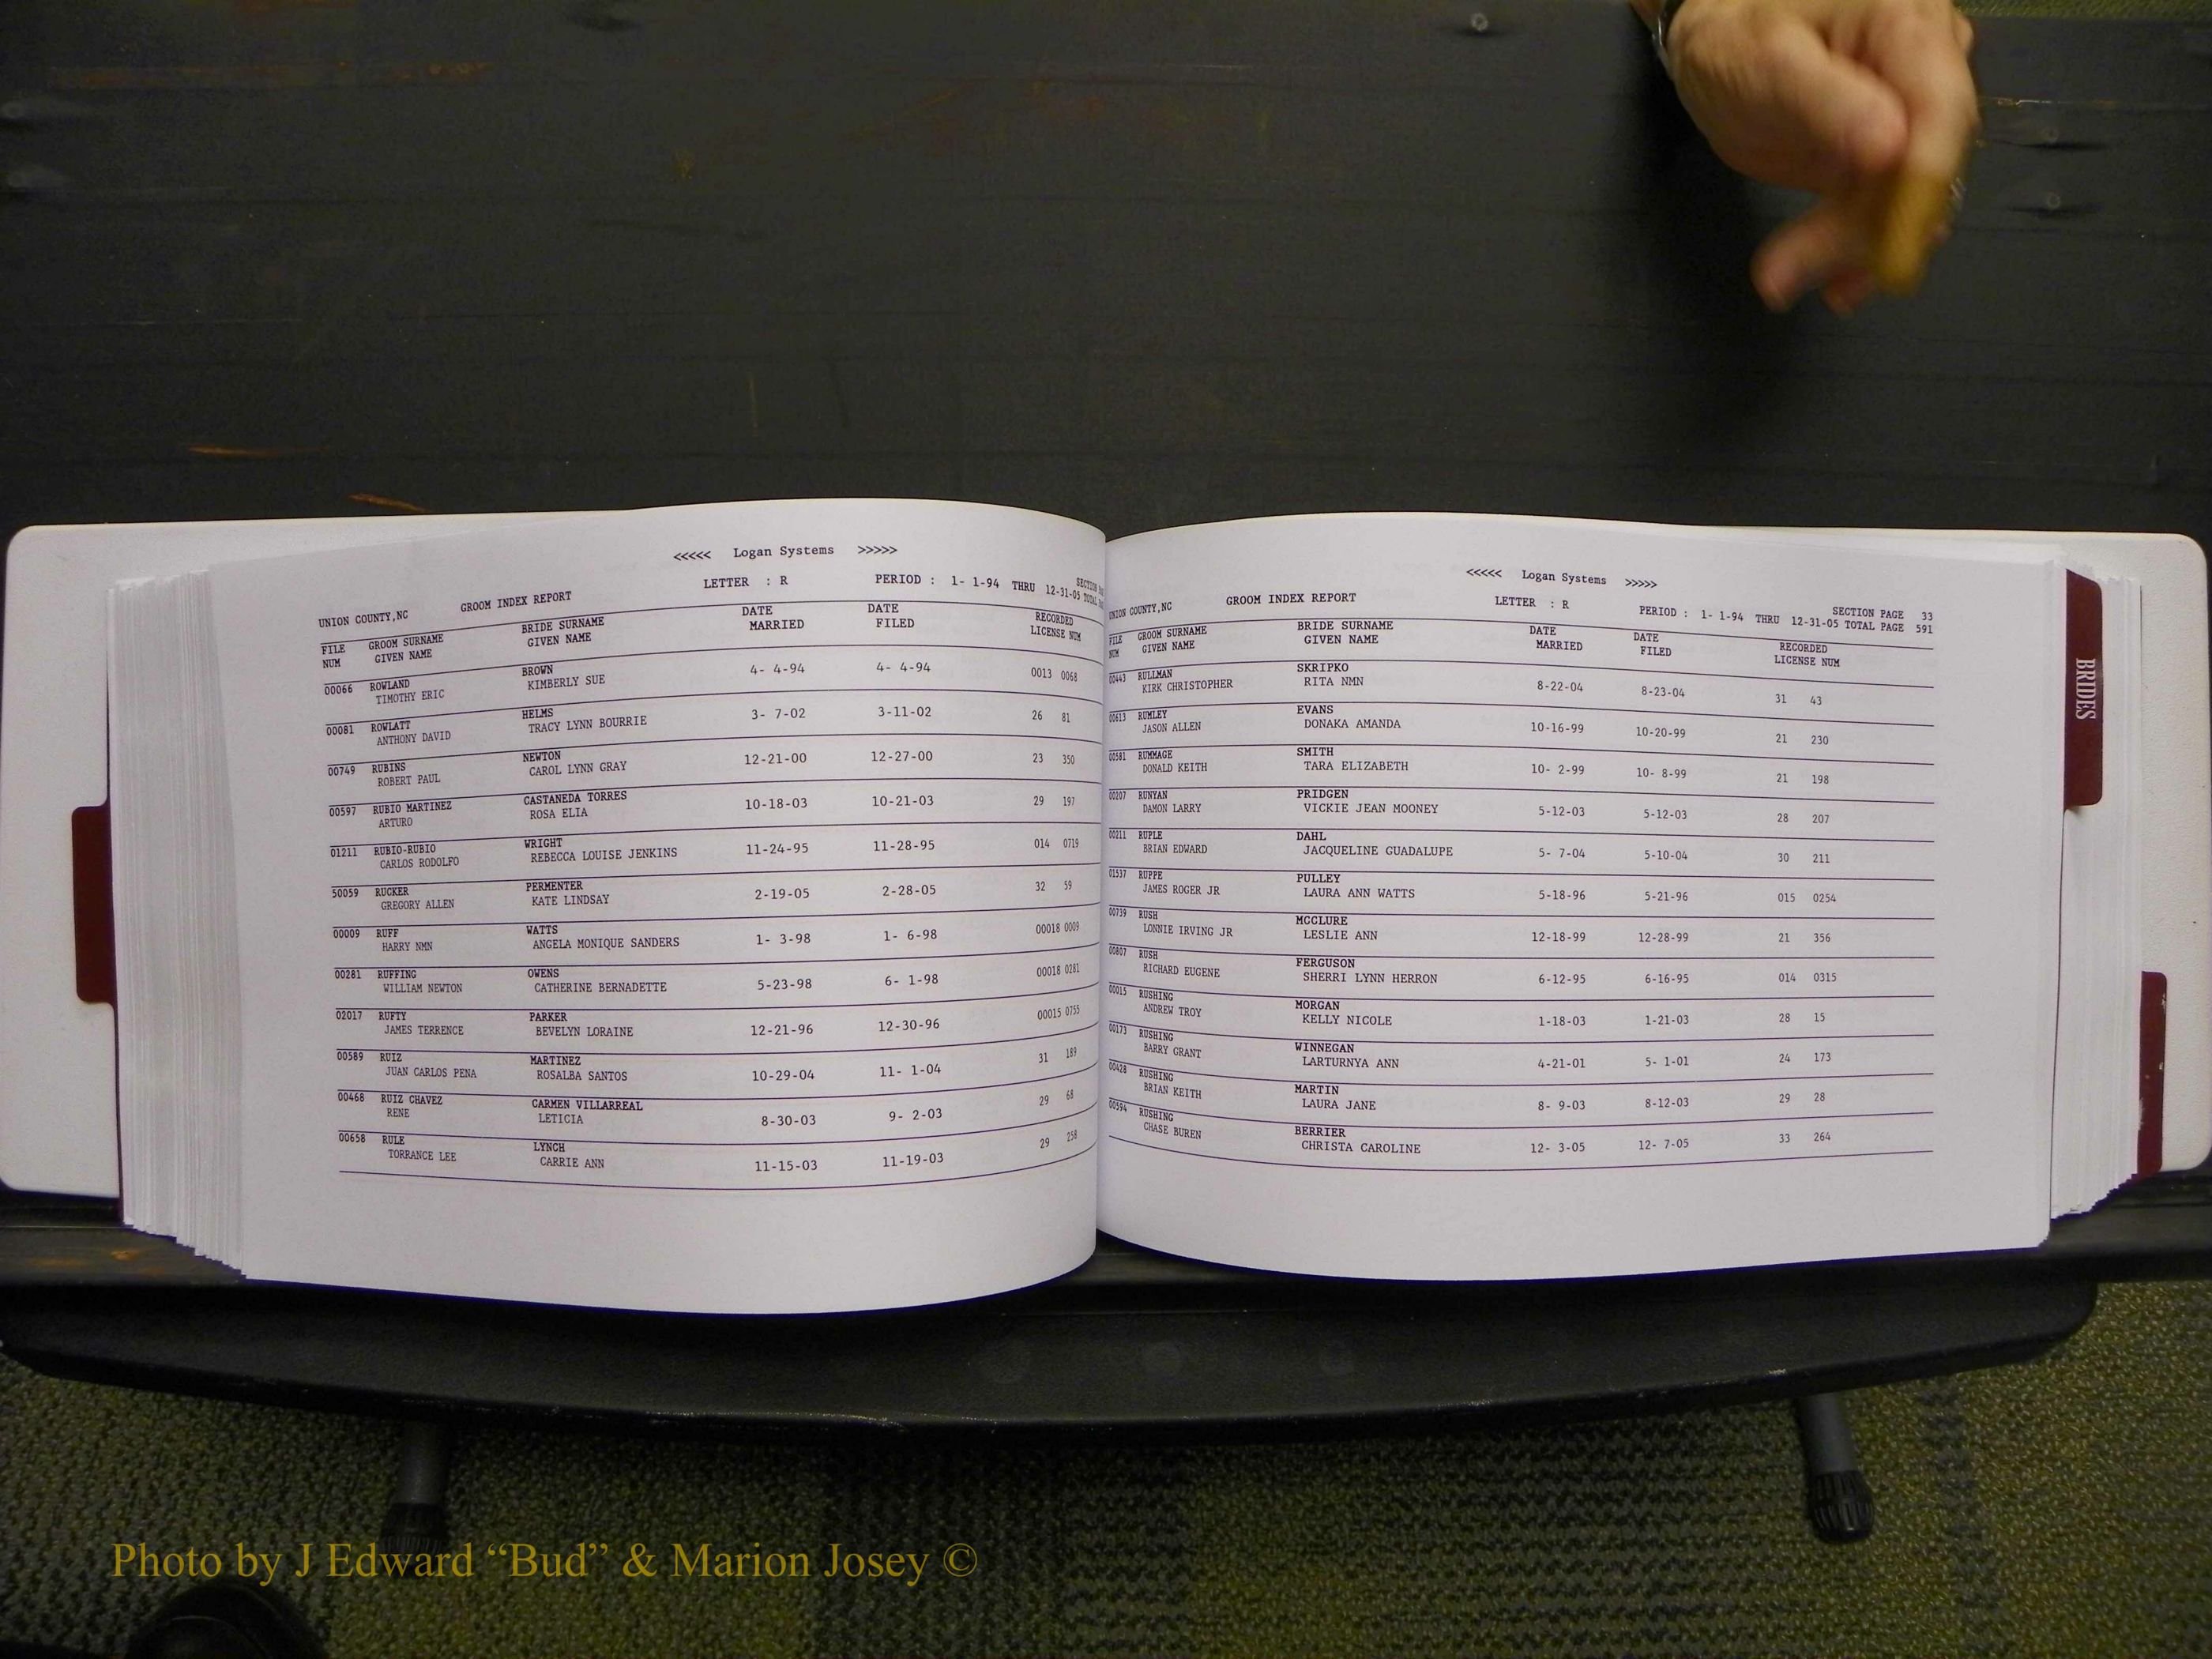 <<<<< Logan Systems >>>>>
UNION COUNTY,NC GROOM INDEX REPORT LETTER : R PERIOD : 1- 1-94 THRU 12-31-05 TOTAL
FILE GROOM SURNAME BRIDE SURNAME DATE DATE RECORDED
NUM GIVEN NAME GIVEN NAME MARRIED FILED LICENSE NUM
00066 ROWLAND BROWN 4- 4-94 4- 4-94 0013 0068
TIMOTHY ERIC KIMBERLY SUE
00081 ROWLATT HELMS 3- 7-02 3-11-02 26 81
ANTHONY DAVID TRACY LYNN BOURRIE
00749 RUBINS NEWTON 12-21-00 12-27-00 23 350
ROBERT PAUL CAROL LYNN GRAY
00597 RUBIO MARTINEZ CASTANEDA TORRES 10-18-03 10-21-03 29 197
ARTURO ROSA ELIA
01211 RUBIO-RUBIO WRIGHT 11-24-95 11-28-95 014 0719
CARLOS RODOLFO REBECCA LOUISE JENKINS
50059 RUCKER PERMENTER 2-19-05 2-28-05 32 59
GREGORY ALLEN KATE LINDSAY
00009 RUFF WATTS 1- 3-98 1- 6-98 00018 0009
HARRY NMN ANGELA MONIQUE SANDERS
00281 RUFFING OWENS 5-23-98 6- 1-98 00018 0281
WILLIAM NEWTON CATHERINE BERNADETTE
02017 RUFTY PARKER 12-21-96 12-30-96 00015 0755
JAMES TERRENCE BEVELYN LORAINE
00589 RUIZ MARTINEZ 10-29-04 11- 1-04 31 189
JUAN CARLOS PENA ROSALBA SANTOS
00468 RUIZ CHAVEZ CARMEN VILLARREAL 8-30-03 9- 2-03 29 68
RENE LETICIA
00658 RULE LYNCH 11-15-03 11-19-03 29 258
TORRANCE LEE CARRIE ANN
<<<<< Logan Systems >>>>>
UNION COUNTY,NC GROOM INDEX REPORT LETTER : R PERIOD : 1- 1-94 THRU 12-31-05 SECTION PAGE 33
TOTAL PAGE 591
FILE GROOM SURNAME BRIDE SURNAME DATE DATE RECORDED
NUM GIVEN NAME GIVEN NAME MARRIED FILED LICENSE NUM
00443 RULLMAN SKRIPKO 8-22-04 8-23-04 31 43
KIRK CHRISTOPHER RITA NMN
00613 RUMLEY EVANS 10-16-99 10-20-99 21 230
JASON ALLEN DONAKA AMANDA
00581 RUMMAGE SMITH 10- 2-99 10- 8-99 21 198
DONALD KEITH TARA ELIZABETH
00207 RUNYAN PRIDGEN 5-12-03 5-12-03 28 207
DAMON LARRY VICKIE JEAN MOONEY
00211 RUPLE DAHL 5- 7-04 5-10-04 30 211
BRIAN EDWARD JACQUELINE GUADALUPE
01537 RUPPE PULLEY 5-18-96 5-21-96 015 0254
JAMES ROGER JR LAURA ANN WATTS
00739 RUSH MCCLURE 12-18-99 12-28-99 21 356
LONNIE IRVING JR LESLIE ANN
00807 RUSH FERGUSON 6-12-95 6-16-95 014 0315
RICHARD EUGENE SHERRI LYNN HERRON
00015 RUSHING MORGAN 1-18-03 1-21-03 28 15
ANDREW TROY KELLY NICOLE
00173 RUSHING WINNEGAN 4-21-01 5- 1-01 24 173
BARRY GRANT LARTURNYA ANN
00428 RUSHING MARTIN 8- 9-03 8-12-03 29 28
BRIAN KEITH LAURA JANE
00594 RUSHING BERRIER 12- 3-05 12- 7-05 33 264
CHASE BUREN CHRISTA CAROLINE
BRIDES
Photo by J Edward “Bud” & Marion Josey ©